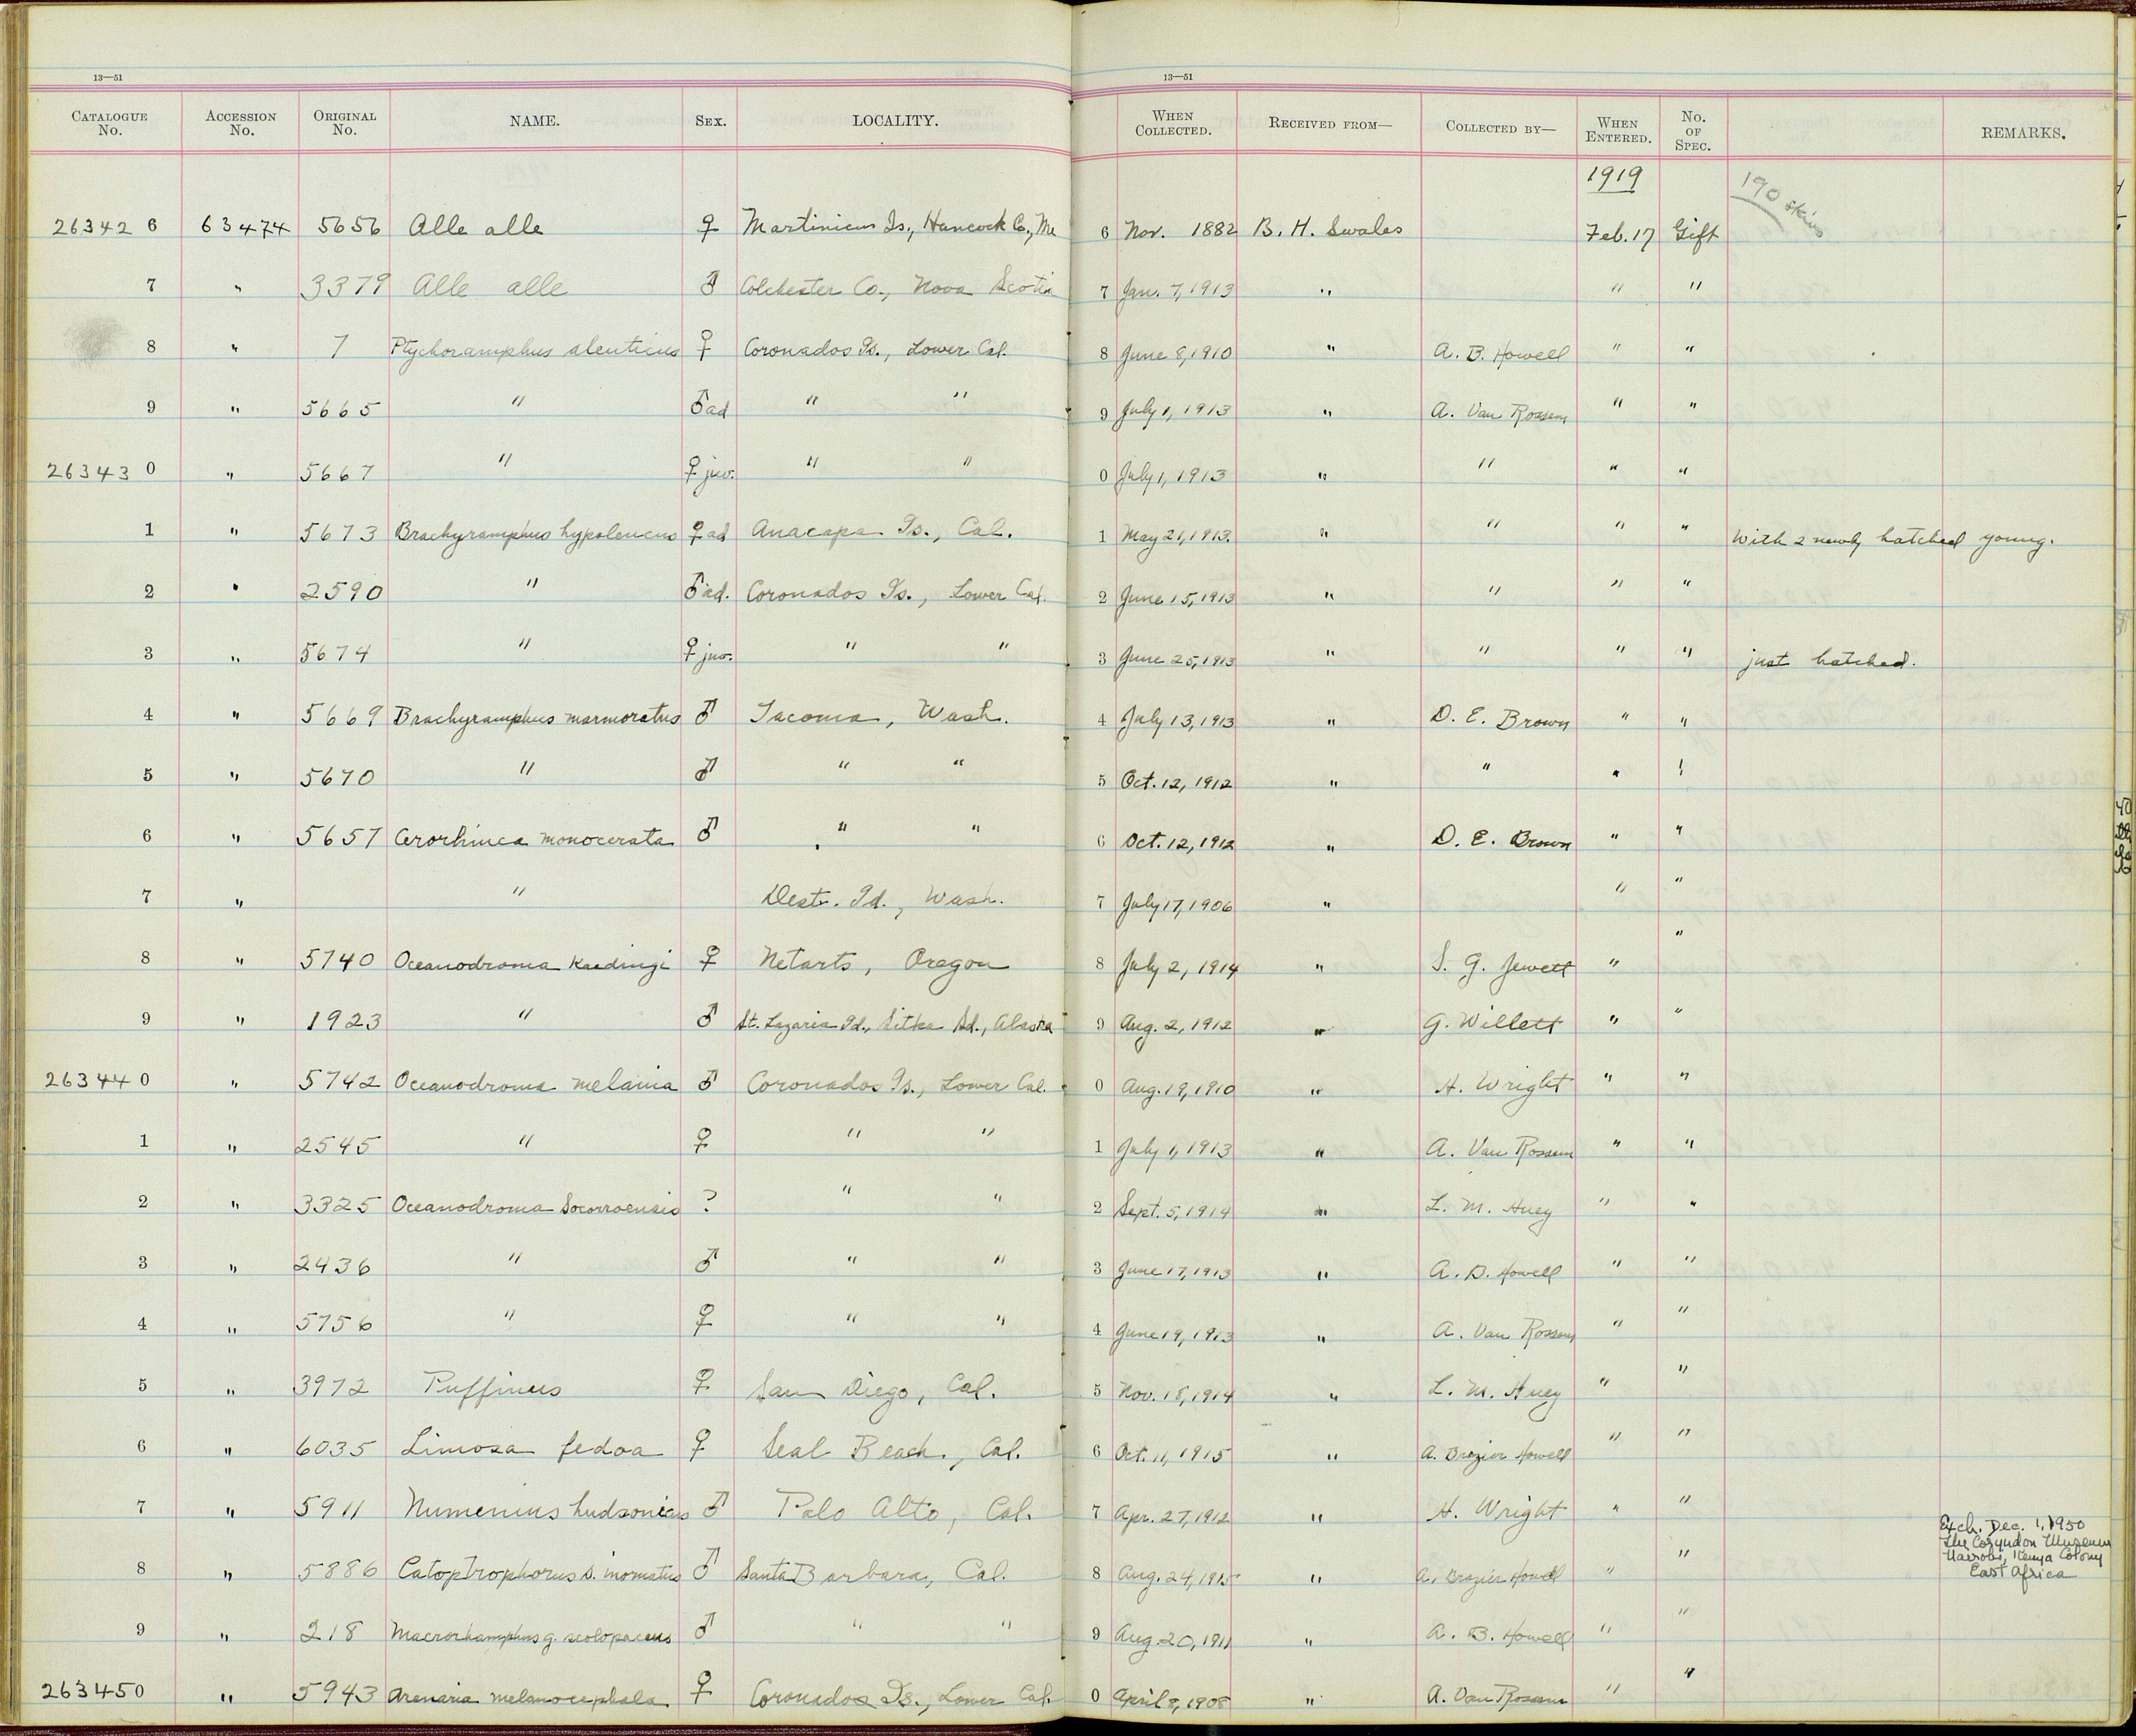 13—51 13—51
CATALOGUE No. ACCESSION No. ORIGINAL No. NAME. SEX. LOCALITY. WHEN COLLECTED. RECEIVED FROM— COLLECTED BY— WHEN ENTERED. No. OF SPEC. REMARKS.
1919 190 skins
26342 6 63474 5656 Alle alle ♀ Martinicus Is., Hancock Co., Me 6 Nov. 1882 B. H. Swales Feb. 17 Gift
7 " 3379 Alle alle ♂ Colchester Co., Nova Scotia 7 Jan. 7, 1913 " " "
8 " 7 Ptychoramphus aleuticus ♀ Coronados Is., Lower Cal. 8 June 8, 1910 " A. B. Howell " "
9 " 5665 " ♂ ad " " 9 July 1, 1913 " A. Van Rossem " "
26343 0 " 5667 " ♀ juv. " " 0 July 1, 1913 " " " "
1 " 5673 Brachyramphus hypoleucus ♀ ad Anacapa Is., Cal. 1 May 21, 1913. " " " " With 2 newly hatched young.
2 " 2590 " ♂ ad. Coronados Is., Lower Cal. 2 June 15, 1913 " " " "
3 " 5674 " ♀ juv. " " 3 June 25, 1913 " " " " just hatched.
4 " 5669 Brachyramphus marmoratus ♂ Tacoma, Wash. 4 July 13, 1913 " D. E. Brown " "
5 " 5670 " ♂ " " 5 Oct. 12, 1912 " " " "
6 " 5657 Cerorhinca monocerata ♂ " " 6 Oct. 12, 1912 " D. E. Brown " "
7 " " Destr. Id., Wash. 7 July 17, 1906 " " "
8 " 5740 Oceanodroma Kaedingi ♀ Netarts, Oregon 8 July 2, 1914 " S. G. Jewett " "
9 " 1923 " ♂ St. Lazaria Id., Sitka Sd., Alaska 9 Aug. 2, 1912 " G. Willett " "
26344 0 " 5742 Oceanodroma melania ♂ Coronados Is., Lower Cal. 0 Aug. 19, 1910 " H. Wright " "
1 " 2545 " ♀ " " 1 July 1, 1913 " A. Van Rossem " "
2 " 3325 Oceanodroma Socorroensis ? " " 2 Sept. 5, 1914 " L. M. Huey " "
3 " 2436 " ♂ " " 3 June 17, 1913 " A. B. Howell " "
4 " 5756 " ♀ " " 4 June 19, 1913 " A. Van Rossem " "
5 " 3972 Puffinus ♀ San Diego, Cal. 5 Nov. 18, 1914 " L. M. Huey " "
6 " 6035 Limosa fedoa ♀ Seal Beach, Cal. 6 Oct. 11, 1915 " A. Brazier Howell " "
7 " 5911 Numenius hudsonicus ♂ Palo Alto, Cal. 7 Apr. 27, 1912 " H. Wright " "
Exch. Dec. 1, 1950
The Coryndon Museum
Nairobi, Kenya Colony
East Africa
8 " 5886 Catoptrophorus s. inornatus ♂ Santa Barbara, Cal. 8 Aug. 24, 1915 " A. Brazier Howell " "
9 " 218 Macrorhamphus g. scolopaceus ♂ " " 9 Aug. 20, 1911 " A. B. Howell " "
26345 0 " 5943 Arenaria melanocephala ♀ Coronados Is., Lower Cal. 0 April 8, 1908 " A. Van Rossem " "